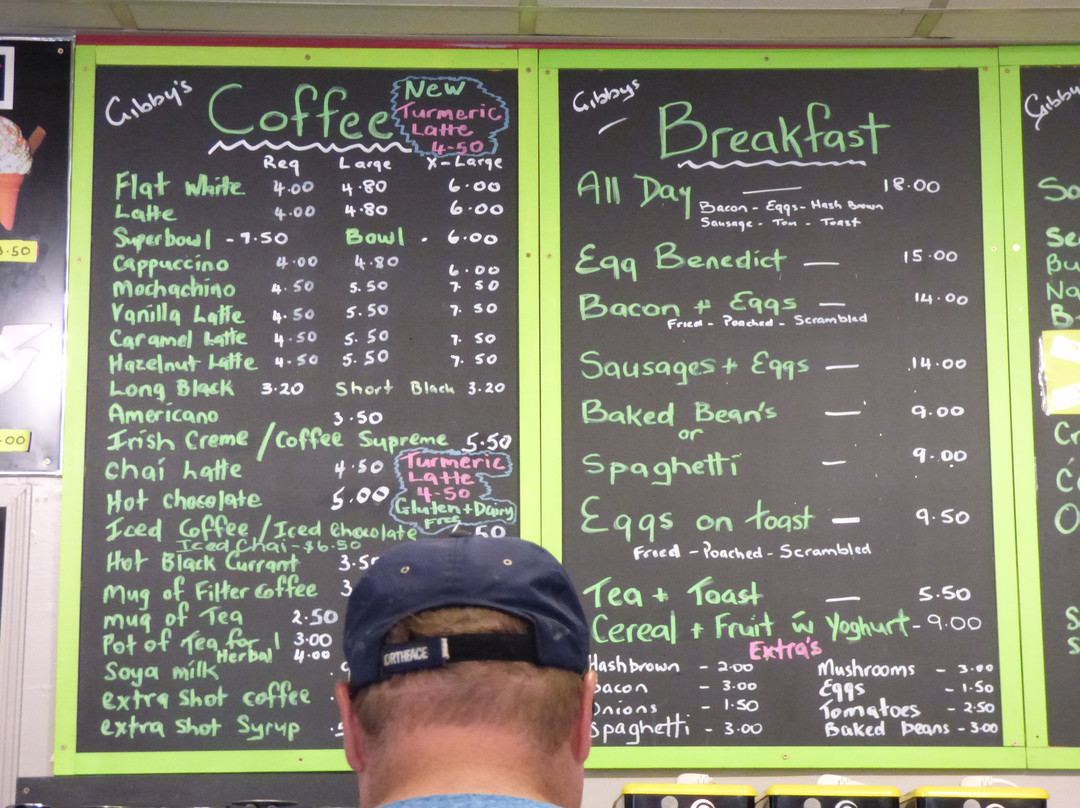 Gibby's
Coffee
New
Turmeric
Latte
4-50
Reg Large X-Large
Flat White 4.00 4.80 6.00
Latte 4.00 4.80 6.00
Superbowl - 7.50 Bowl - 6.00
Cappuccino 4.00 4.80 6.00
Mochachino 4.50 5.50 7.50
Vanilla Latte 4.50 5.50 7.50
Caramel Latte 4.50 5.50 7.50
Hazelnut Latte 4.50 5.50 7.50
Long Black 3.20 Short Black 3.20
Americano 3.50
Irish Creme / Coffee Supreme 5.50
Chai Latte 4.50
Turmeric
Latte
4-50
Gluten + Dairy
Free
Hot chocolate 5.00
Iced Coffee / Iced Chocolate 50
Iced Chai - $6.50
Hot Black Currant
Mug of Filter Coffee
mug of Tea 2.50
Pot of Tea for 1 3.00
Herbal 4.00
Soya milk
extra Shot coffee
extra Shot Syrup
NORTHFACE
Gibbys
Breakfast
All Day — 18.00
Bacon - Eggs - Hash Brown
Sausage - Tom - Toast
Egg Benedict — 15.00
Bacon + Eggs — 14.00
Fried - Poached - Scrambled
Sausages + Eggs — 14.00
Baked Bean's — 9.00
or
Spaghetti — 9.00
Eggs on toast — 9.50
Fried - Poached - Scrambled
Tea + Toast — 5.50
Cereal + Fruit w Yoghurt - 9.00
Extra's
Hashbrown - 2.00 Mushrooms - 3.00
Bacon - 3.00 Eggs - 1.50
Onions - 1.50 Tomatoes - 2.50
Spaghetti - 3.00 Baked beans - 3.00
Gibby